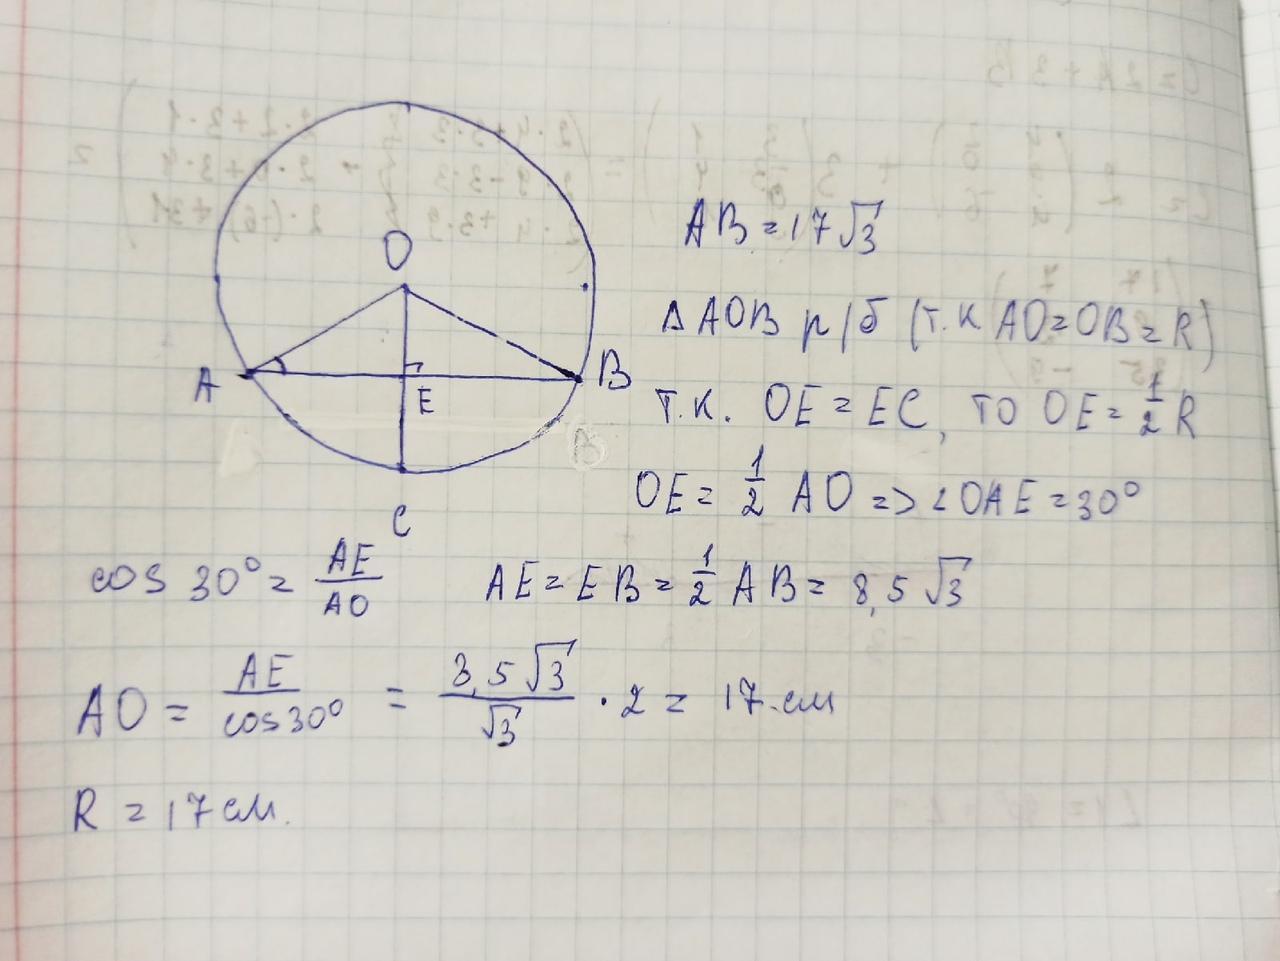 O
A
B
E
C
AB = 17√3
Δ AOB р/б (т.к AO = OB = R)
т.к. OE = EC, то OE = 1/2 R
OE = 1/2 AO => ∠OAE = 30°
cos 30° = AE/AO   AE = EB = 1/2 AB = 8,5√3
AO = AE/cos30° = 8,5√3/√3 · 2 = 17 см
R = 17 см.